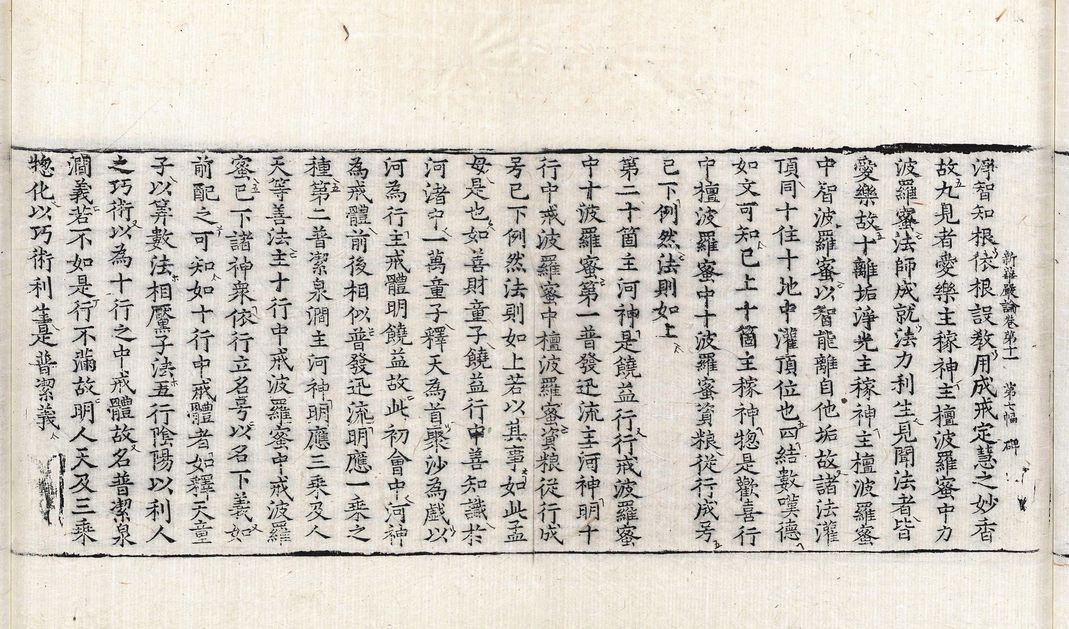 新華嚴論卷第十一 第七幅 碑
淨智知根依根誤教用成戒定慧之妙香
故九見者愛樂主稼神主檀波羅蜜中力
波羅蜜法師成就法力利生見聞法者皆
愛樂故十離垢淨光主稼神主檀波羅蜜
中智波羅蜜以智能離自他垢故諸法灌
頂同十住十地中灌頂位也四結數嘆德
如文可知已上十箇主稼神惣是歡喜行
中檀波羅蜜中十波羅蜜資粮從行成号
已下例然法則如上
第二十箇主河神是饒益行行戒波羅蜜
中十波羅蜜第一普發迅流主河神明十
行中戒波羅蜜中檀波羅蜜資粮從行成
号已下例然法則如上若以其事如此孟
母是也如善財童子饒益行中善知識於
河渚中一萬童子釋天為首聚沙為戲以
河為行主戒體明饒益故此初會中河神
為戒體前後相似普發迅流明應一乘之
種第二普潔泉澗主河神明應三乘及人
天等善法主十行中戒波羅蜜中戒波羅
蜜已下諸神衆依行立名号以名下義如
前配之可知如十行中戒體者如釋天童
子以筭數法相厭子法五行陰陽以利人
之巧術以為十行之中戒體故名普潔泉
澗義若不如是行行不滿故明人天及三乘
惣化以巧術利生是普潔義